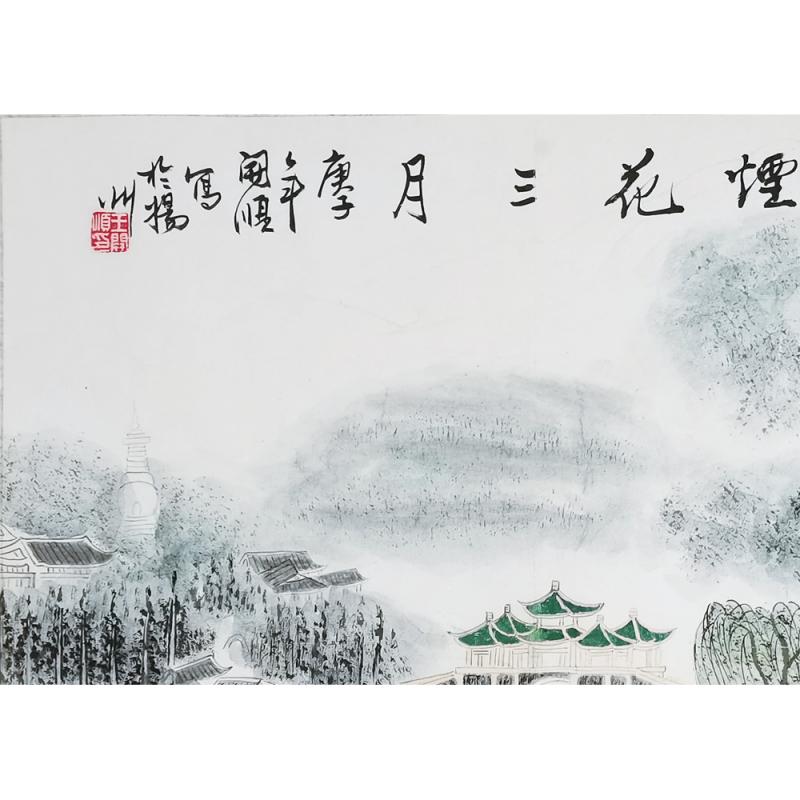 煙花三月
庚子
年
開順
寫
於揚
州
王開
順印